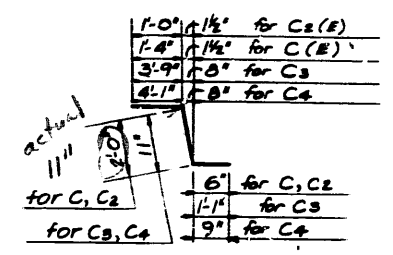 1'-0" 1½" for C2(E)
1'-4" 1½" for C(E)
3'-9" 8" for C3
4'-1" 8" for C4
actual
11"
2'-0" 11"
for C, C2
for C3, C4
6" for C, C2
1'-1" for C3
9" for C4